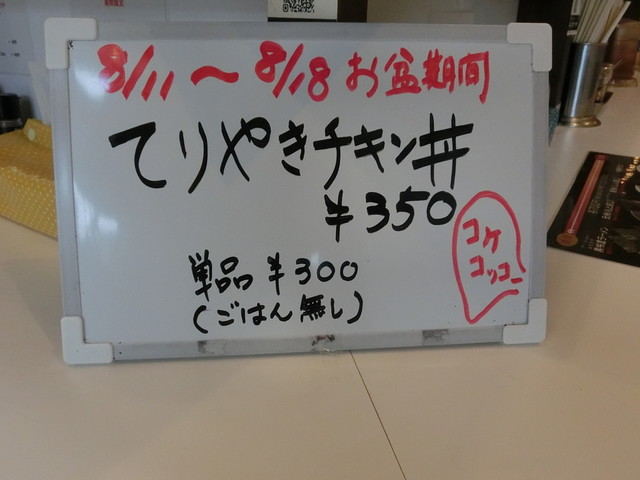 8/11〜8/18 お盆期間
てりやきチキン丼
¥350
コケ
コッコー
単品 ¥300
(ごはん無し)